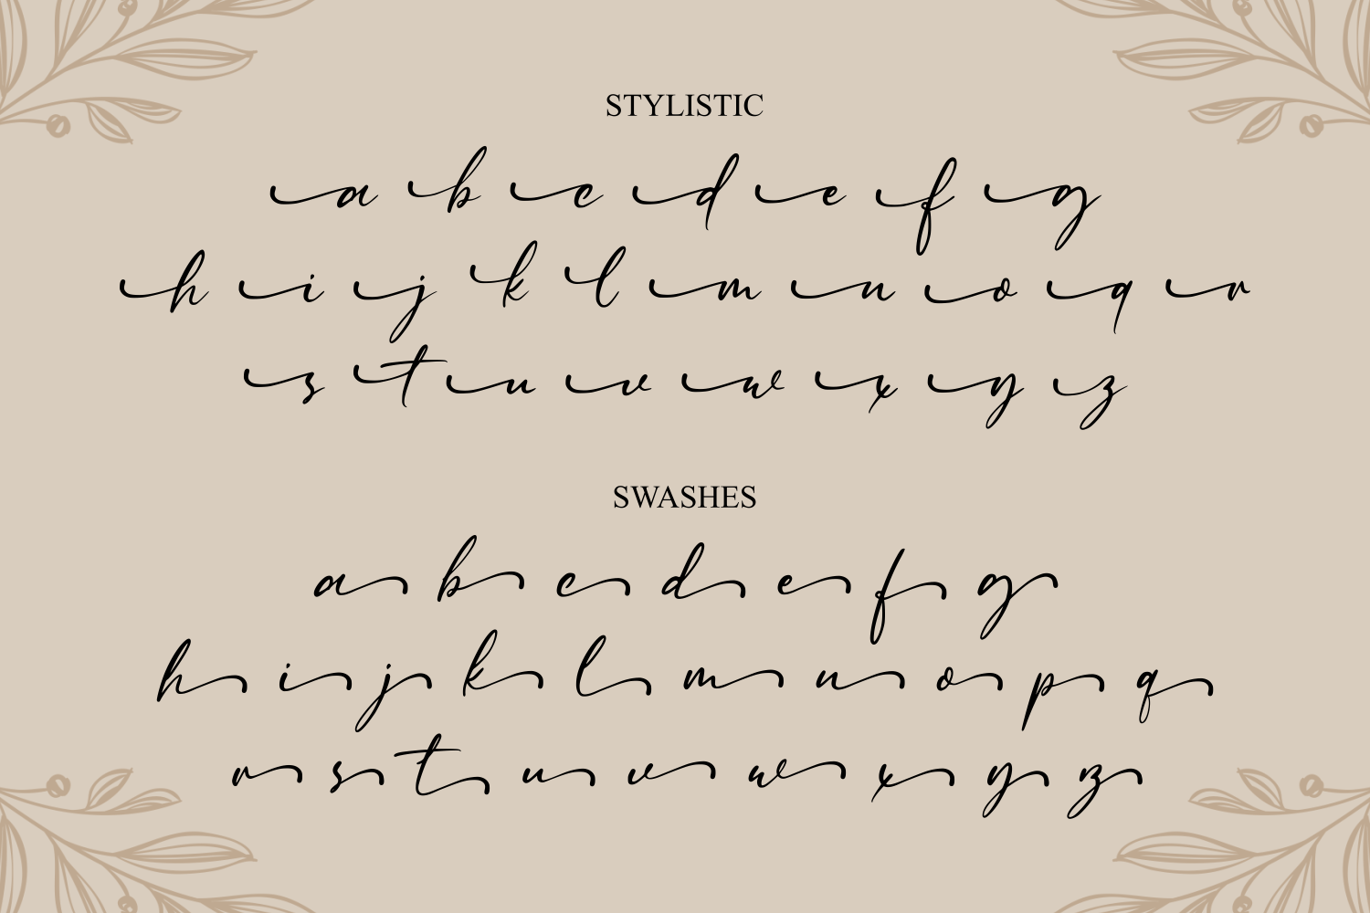 STYLISTIC
a b c d e f g
h i j k l m n o q r
s t u v w x y z
SWASHES
a b c d e f g
h i j k l m n o p q
r s t u v w x y z